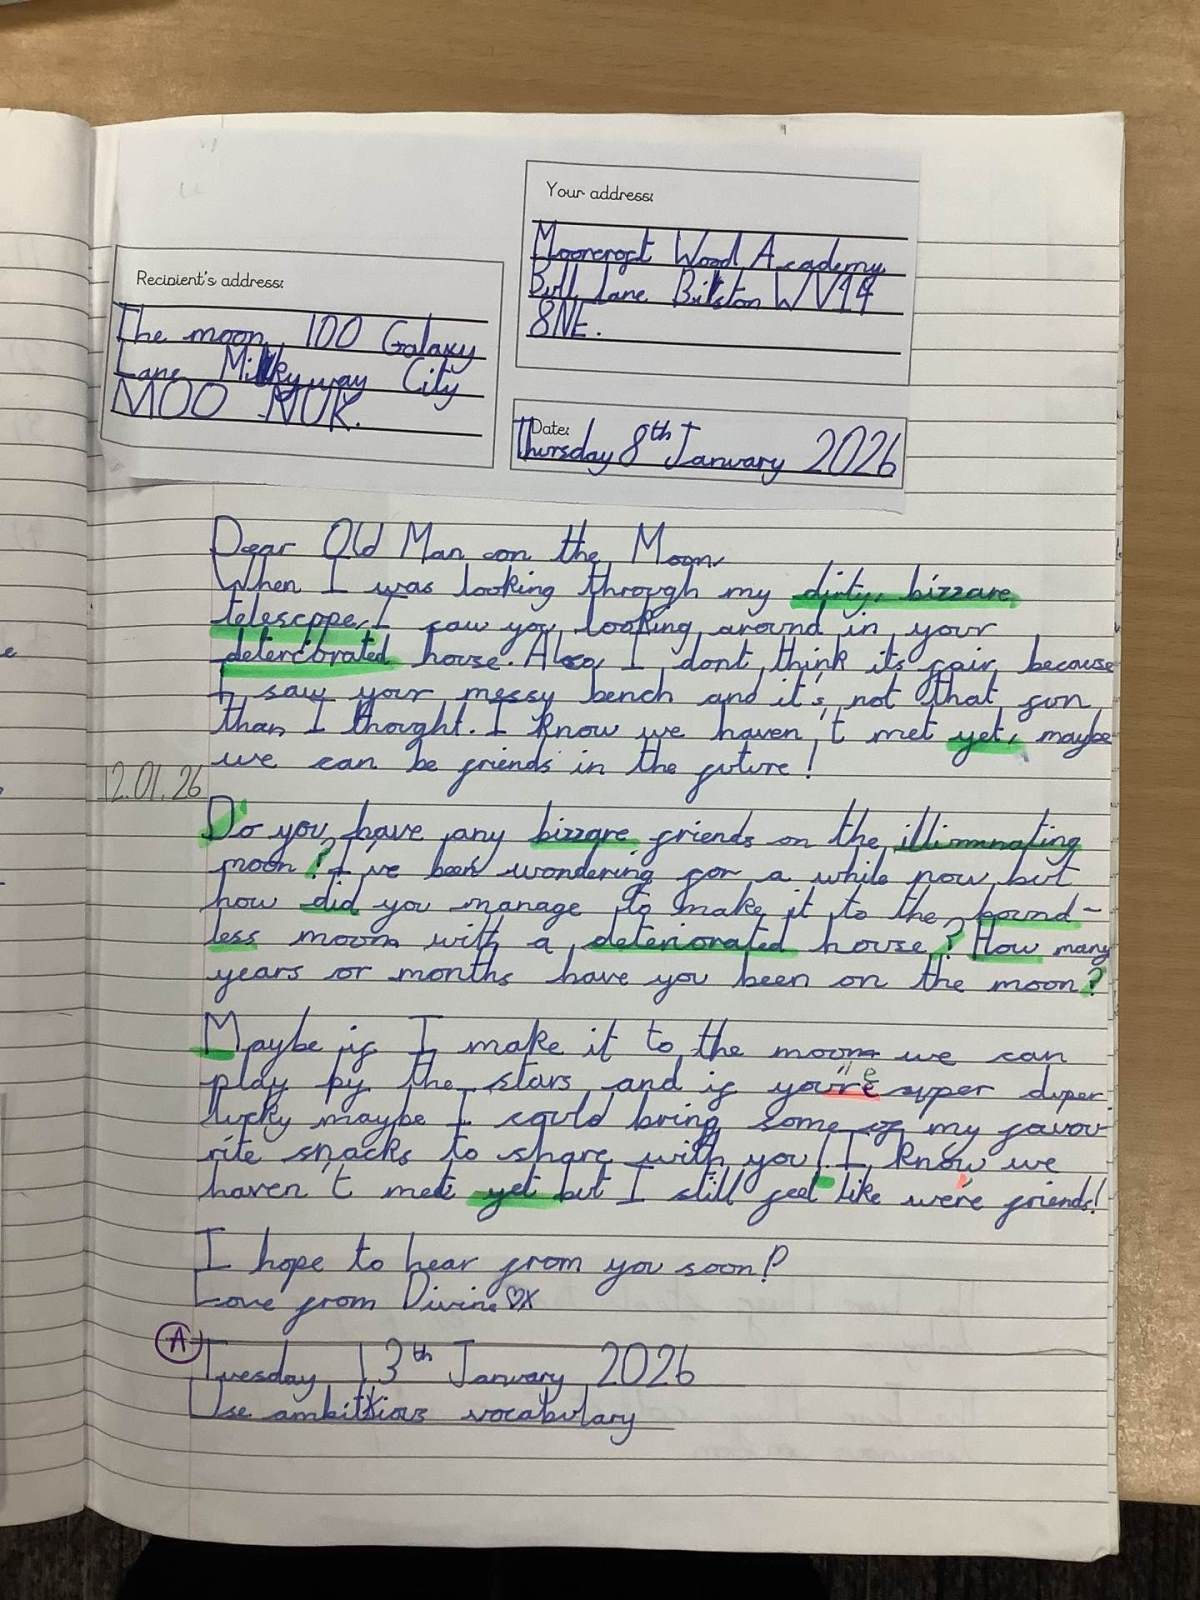 Your address:
Moorcroft Wood Academy
Bull Lane Bilston WV14
8NE.
Recipient's address:
The moon, 100 Galaxy
Lane Milkyway City
MOO NUK.
Date:
Thursday 8th January 2026
Dear Old Man on the Moon,
When I was looking through my dirty, bizzare,
telescope, I saw you looking around in your
deteriorated house. Also, I dont think its fair because
I saw your messy bench and it's not that fun
than I thought. I know we haven't met yet, maybe
we can be friends in the future!
12.01.26
Do you have any bizzare friends on the illiminating
moon? I've been wondering for a while now but
how did you manage to make it to the bound-
less moon with a deteriorated house? How many
years or months have you been on the moon?
Maybe if I make it to the moon we can
play by the stars and if you're super duper
lucky maybe I could bring some of my favou-
rite snacks to share with you! I know we
haven't met yet but I still feel like we're friends!
I hope to hear from you soon?
Love from Divine ♡X
A
Tuesday 13th January 2026
Use ambitious vocabulary